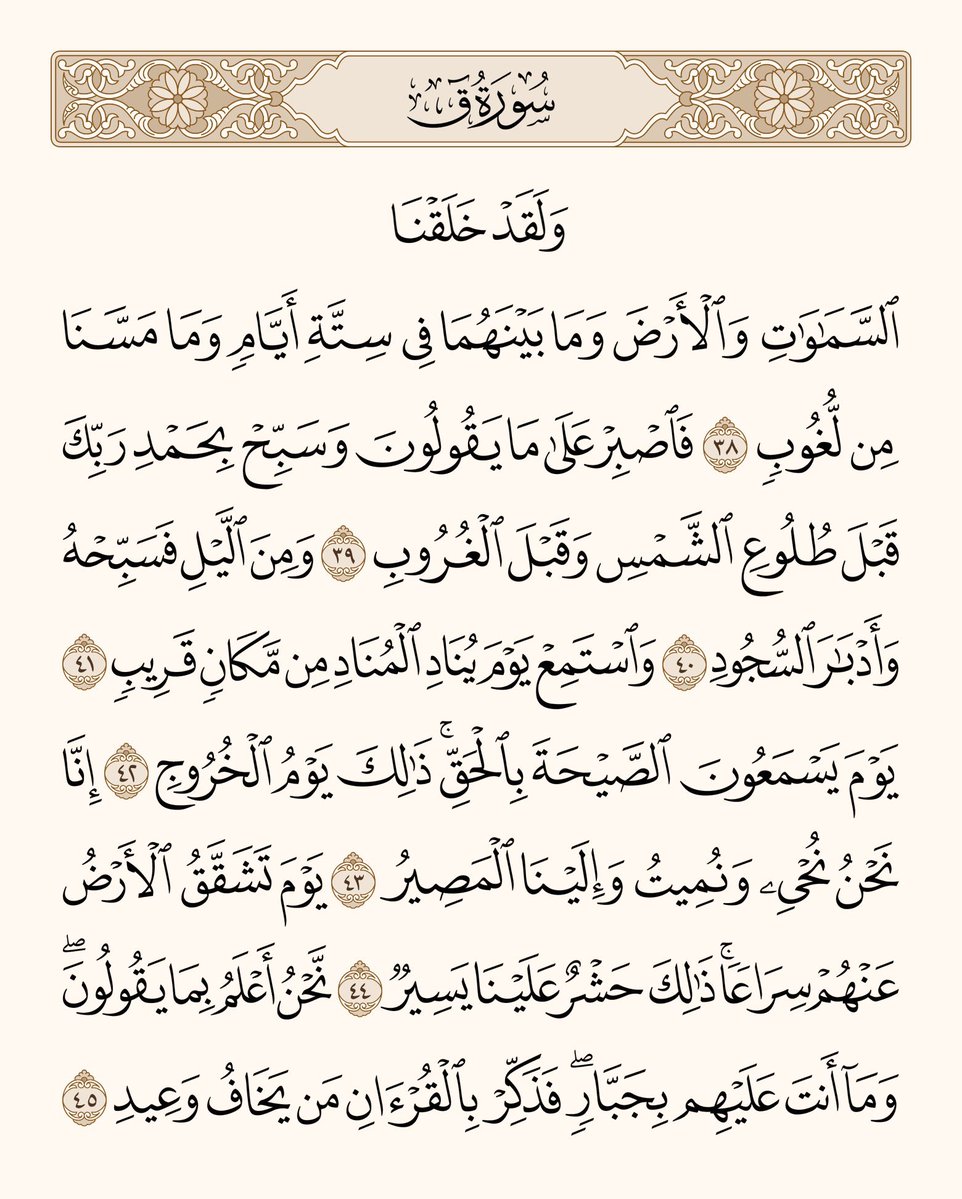 سُورَةُ قٓ
وَلَقَدْ خَلَقْنَا
ٱلسَّمَٰوَٰتِ وَٱلْأَرْضَ وَمَا بَيْنَهُمَا فِى سِتَّةِ أَيَّامٍ وَمَا مَسَّنَا
مِن لُّغُوبٍ ٣٨ فَٱصْبِرْ عَلَىٰ مَا يَقُولُونَ وَسَبِّحْ بِحَمْدِ رَبِّكَ
قَبْلَ طُلُوعِ ٱلشَّمْسِ وَقَبْلَ ٱلْغُرُوبِ ٣٩ وَمِنَ ٱلَّيْلِ فَسَبِّحْهُ
وَأَدْبَٰرَ ٱلسُّجُودِ ٤٠ وَٱسْتَمِعْ يَوْمَ يُنَادِ ٱلْمُنَادِ مِن مَّكَانٍ قَرِيبٍ ٤١
يَوْمَ يَسْمَعُونَ ٱلصَّيْحَةَ بِٱلْحَقِّ ۚ ذَٰلِكَ يَوْمُ ٱلْخُرُوجِ ٤٢ إِنَّا
نَحْنُ نُحْىِۦ وَنُمِيتُ وَإِلَيْنَا ٱلْمَصِيرُ ٤٣ يَوْمَ تَشَقَّقُ ٱلْأَرْضُ
عَنْهُمْ سِرَاعًا ۚ ذَٰلِكَ حَشْرٌ عَلَيْنَا يَسِيرٌ ٤٤ نَّحْنُ أَعْلَمُ بِمَا يَقُولُونَ ۖ
وَمَآ أَنتَ عَلَيْهِم بِجَبَّارٍ ۖ فَذَكِّرْ بِٱلْقُرْءَانِ مَن يَخَافُ وَعِيدِ ٤٥